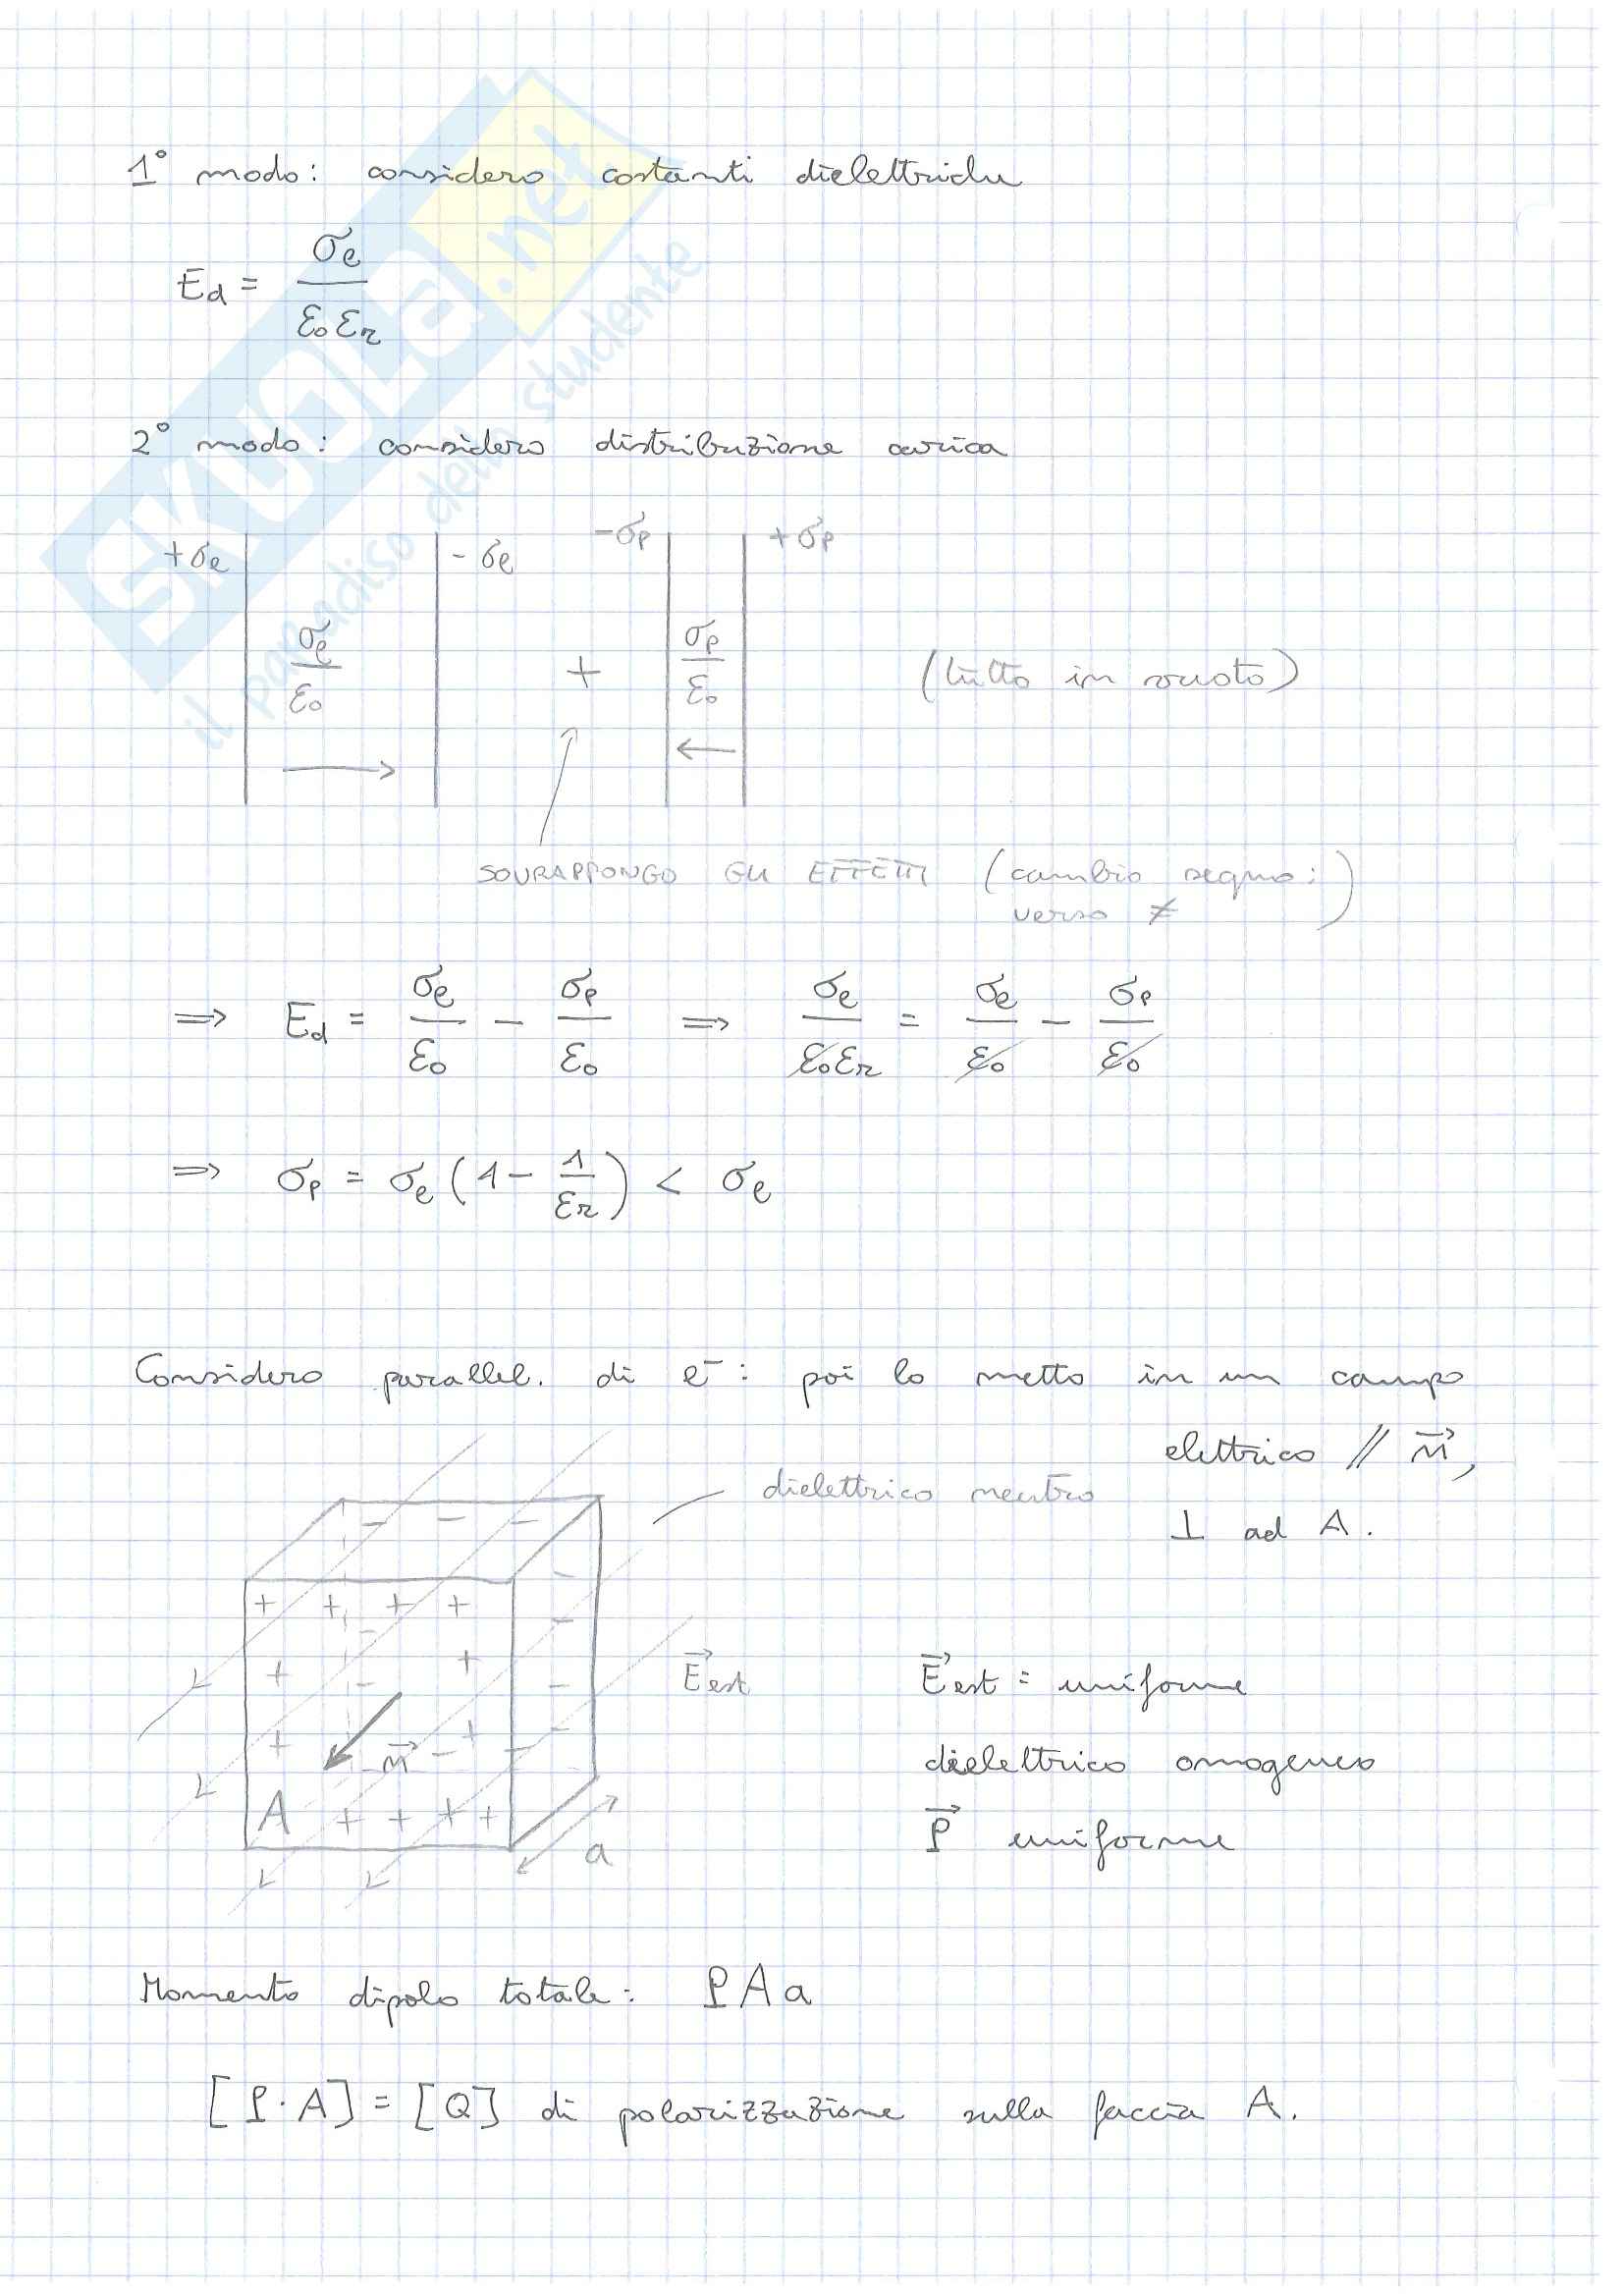 1° modo: considero costanti dielettriche
Ed = σe / ε0 εr
2° modo: considero distribuzione carica
+σe -σe -σp +σp
σe/ε0 + σp/ε0 (tutto in vuoto)
SOVRAPPONGO GLI EFFETTI (cambio segno:
verso ≠)
⇒ Ed = σe/ε0 - σp/ε0 ⇒ σe/ε0εr = σe/ε0 - σp/ε0
⇒ σp = σe (1 - 1/εr) < σe
Considero parallel. di e⁻: poi lo metto in un campo
elettrico // n⃗,
⊥ ad A.
dielettrico neutro
E⃗est
n⃗
A
a
E⃗est = uniforme
dielettrico omogeneo
P⃗ uniforme
Momento dipolo totale: P A a
[P·A] = [Q] di polarizzazione sulla faccia A.
SKUOLA.net
il paradiso dello studente